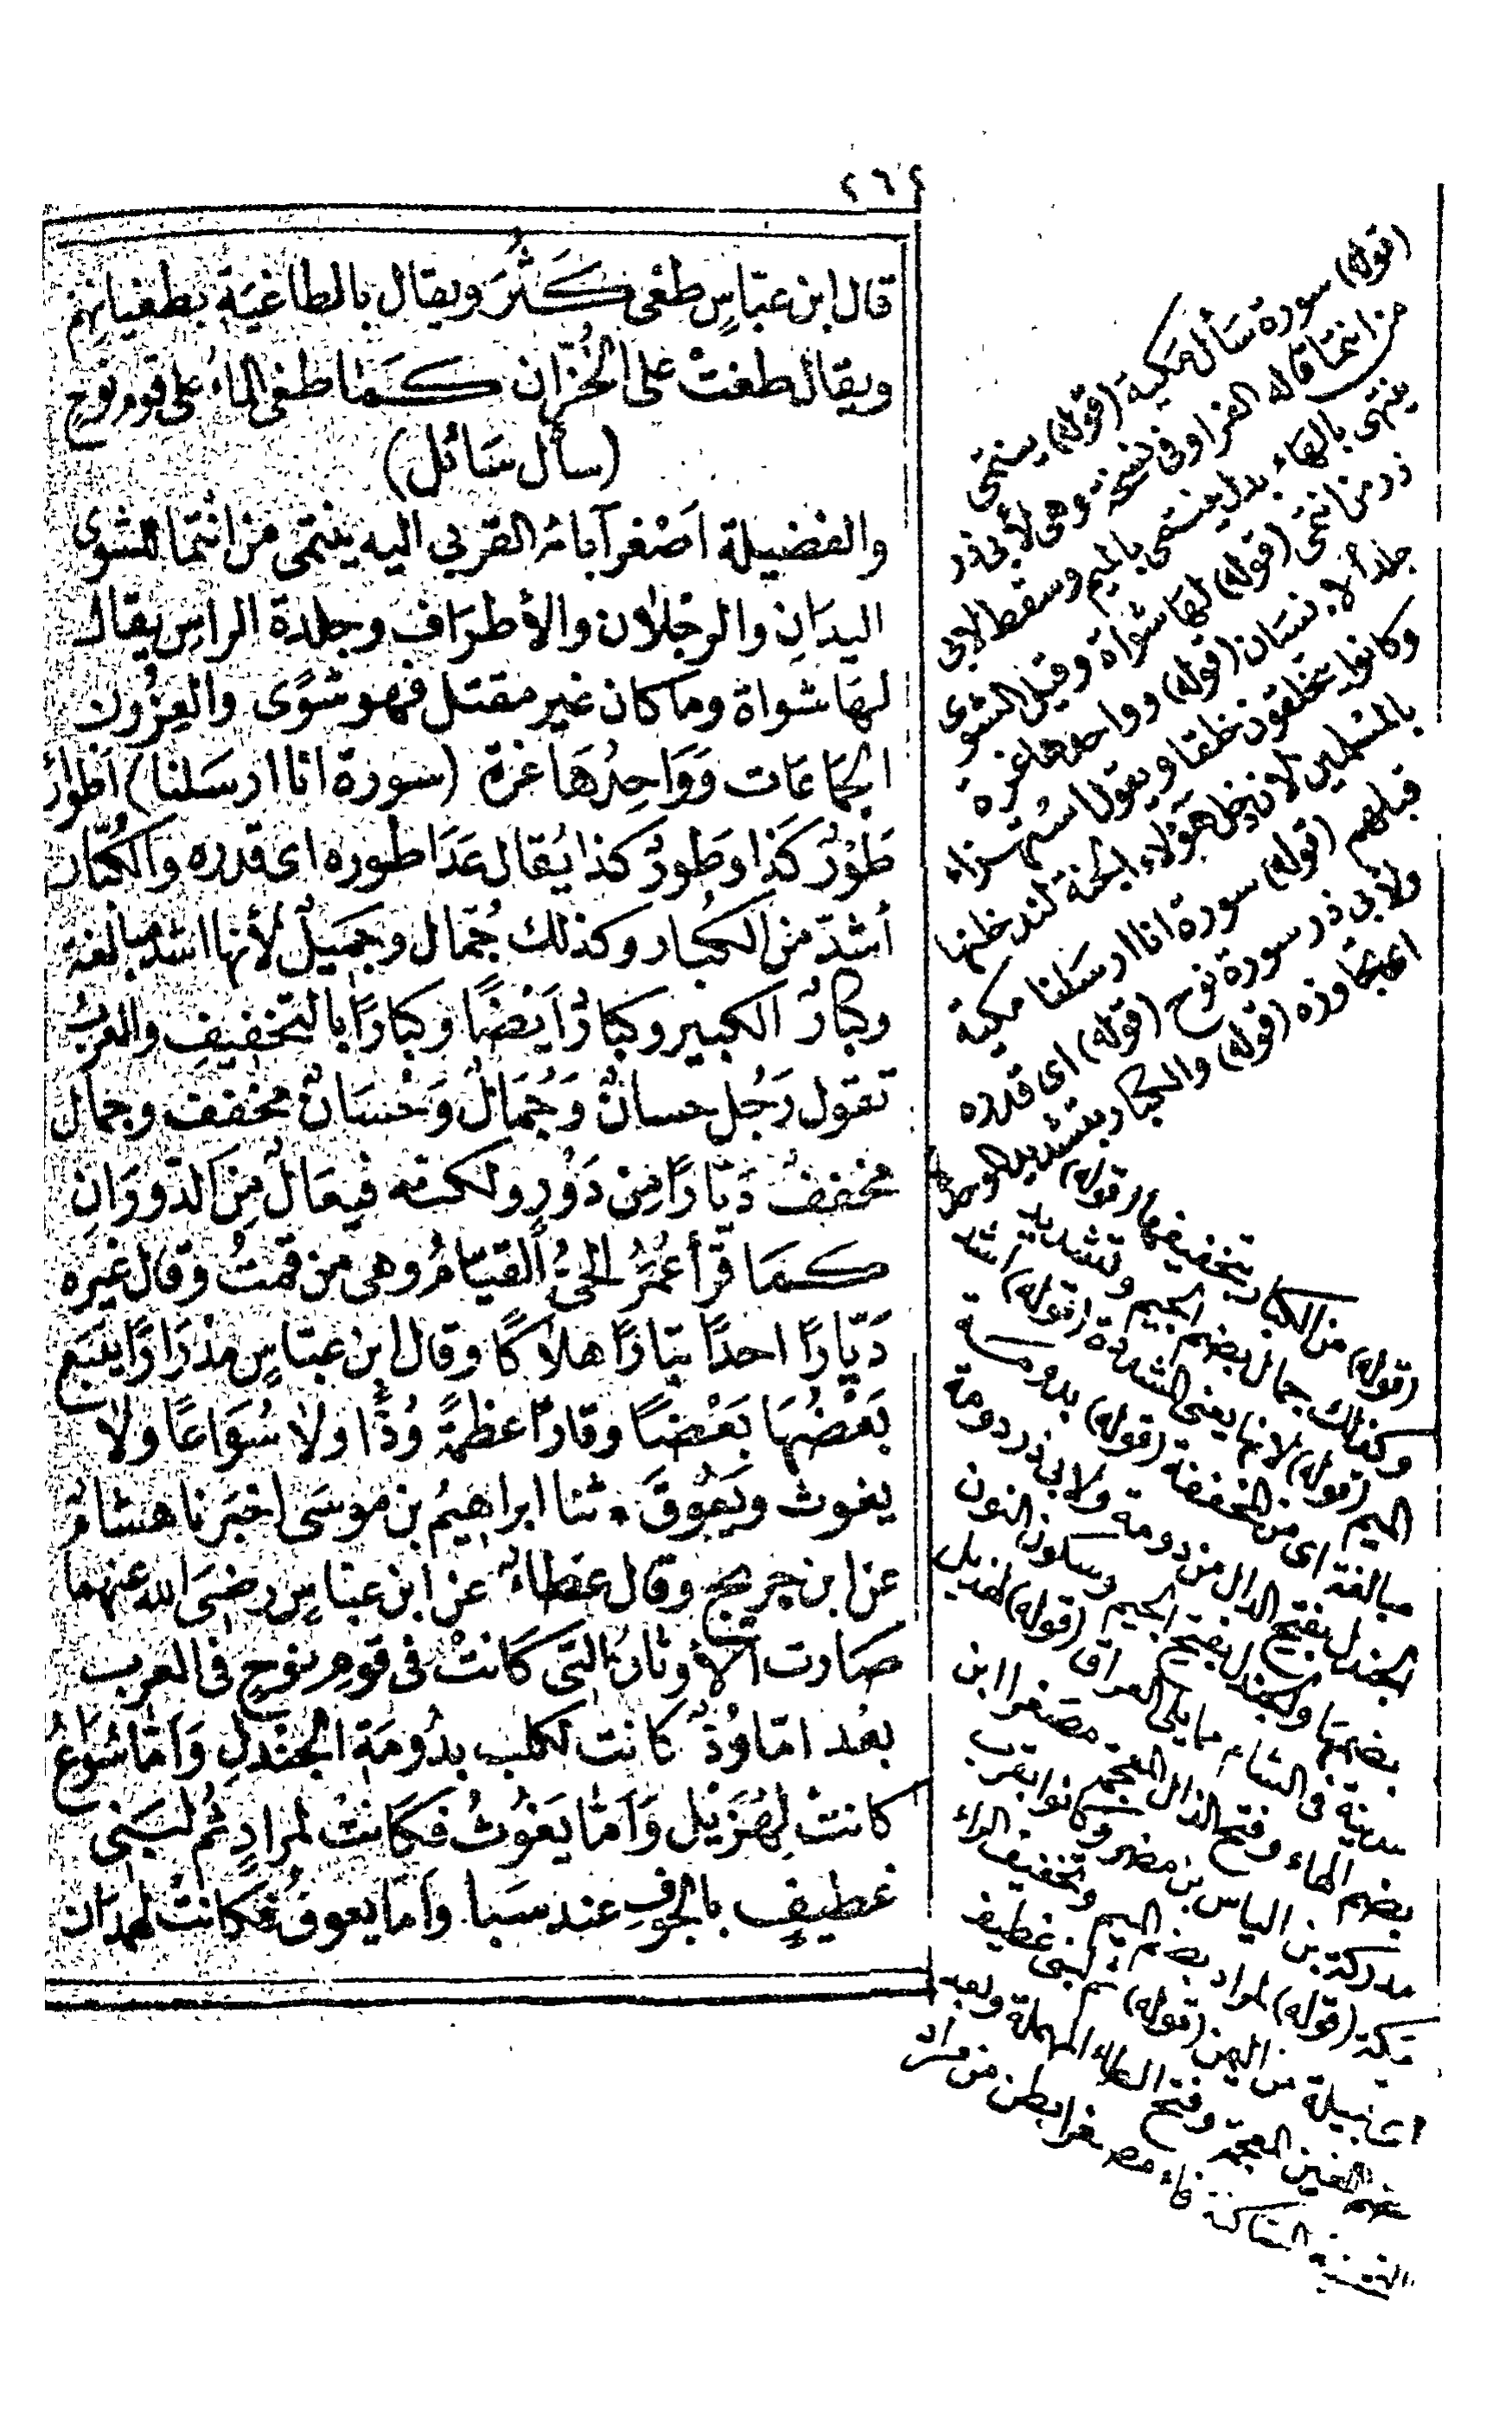 ٢٦٤
قال ابن عبّاسٍ طغى كَثُرَ ويقال بالطاغيَةِ بطغيانِهِم
ويقال طغتْ على الخُزّان كَما طغى الماءُ على قوم نوحٍ
(سأل سَائل)
والفضيلة اَصْغر آبائهُ القربى اليه ينتمى من انتما للشوى
اليدَانِ والرجلان والأطرَاف وجلدة الراسِ يقال
لهَا شواة وما كان غير مقتل فهو شوًى والعِزُون
الجَماعَات وَوَاحِدُهَا عَزة (سورة انا ارسَلنا) اطوارًا
طَوْرٌ كَذا وطَورٌ كذا يُقال عَدَا طوره اى قدره والكُبّار
أشدّ من الكبَار وكذلك جُمّال وجميلٌ لأنها اشد مبالغة
وكبارٌ الكبير وكبارٌ اَيْضًا وكبارًا بالتخفيفِ والعرب
تقول رَجُل حسانٌ وَجُمَّالٌ وَحُسَانٌ مخفف وجمال
مخففٌ دَيّارًا مِن دَوْرٍ ولكنه فيعَالٌ مِن الدّورَانِ
كمَا قَرأ عُمَرُ الحىُّ القيّامُ وهى من قمتُ وقال غيره
دَيّارًا احدًا تبَارًا هلاكًا وقال ابن عبّاسٍ مِدْرَارًا يتبَع
بَعْضُهَا بَعْضًا وقارًا عظمَةً وُدًّا ولا سُوَاعًا ولا
يغوث ويَعُوقَ • ثنا ابراهيمُ بن مُوسَى اخبَرنا هشامٌ
عن ابن جريج وقال عَطاءٌ عن ابن عبّاسٍ رضىَ الله عنهما
صَارت الأوثانُ التى كَانتْ فى قومِ نوحٍ فى العربِ
بعْد امّا وُدٌّ كانت لكلب بدُومَة الجندلِ وَأمّا سُواعٌ
كانتْ لِهُزَيل وَأمّا يَغُوثُ فكَانتْ لمرادٍ ثم لبَنى
غطيفٍ بالجَوفِ عند سَبا وأمّا يعوقُ فكانتْ لهمدَان
(قوله) سورة سَأل مكية (قوله) ينتمى
من انتما قاله الفرا وفى نسخة وهى لأبى ذر
ينتهى بالهاء بدل ينتمى بالميم وسقط لابى
ذر من انتمى (قوله) لهَا شواة وقيل الشوى
جلد الانسَان (قوله) وواحدها عزة
وكانوا يتحلقون حلقا ويقولون استهزاء
بالمُسْلمين لان دخل هؤلاء الجنة لندخلنها
قبلهم (قوله) سورة انا ارسَلنا مكية
ولأبى ذر سورة نوح (قوله) اى قدره
اى تجاوزه (قوله) والكبار بتشديد الموحدة
(قوله) من الكبار بتخفيفها (قوله)
وكذلك جمال بضم الجيم وتشديد
الميم (قوله) لانها يعنى المشددة (قوله) اشد
مبالغة اى من المخففة (قوله) بدومة
الجندل بفتح الدال من دومة ولابى ذر دومة
بضمها والجندل بفتح الجيم وسكون النون
مدينة فى الشام مما يلى العراق (قوله) لهذيل
بضم الهاء وفتح الذال المعجمة مصغرا ابن
مدركة بن الياس بن مضر وكانوا بقرب
مكة (قوله) لمراد بضم الميم وتخفيف الراء
قبيلة من اليمن (قوله) ثم لبنى غطيف
بضم الغين المعجمة وفتح الطاء المهملة وبعد
التحتية الساكنة فاء مصغرا بطن من مراد